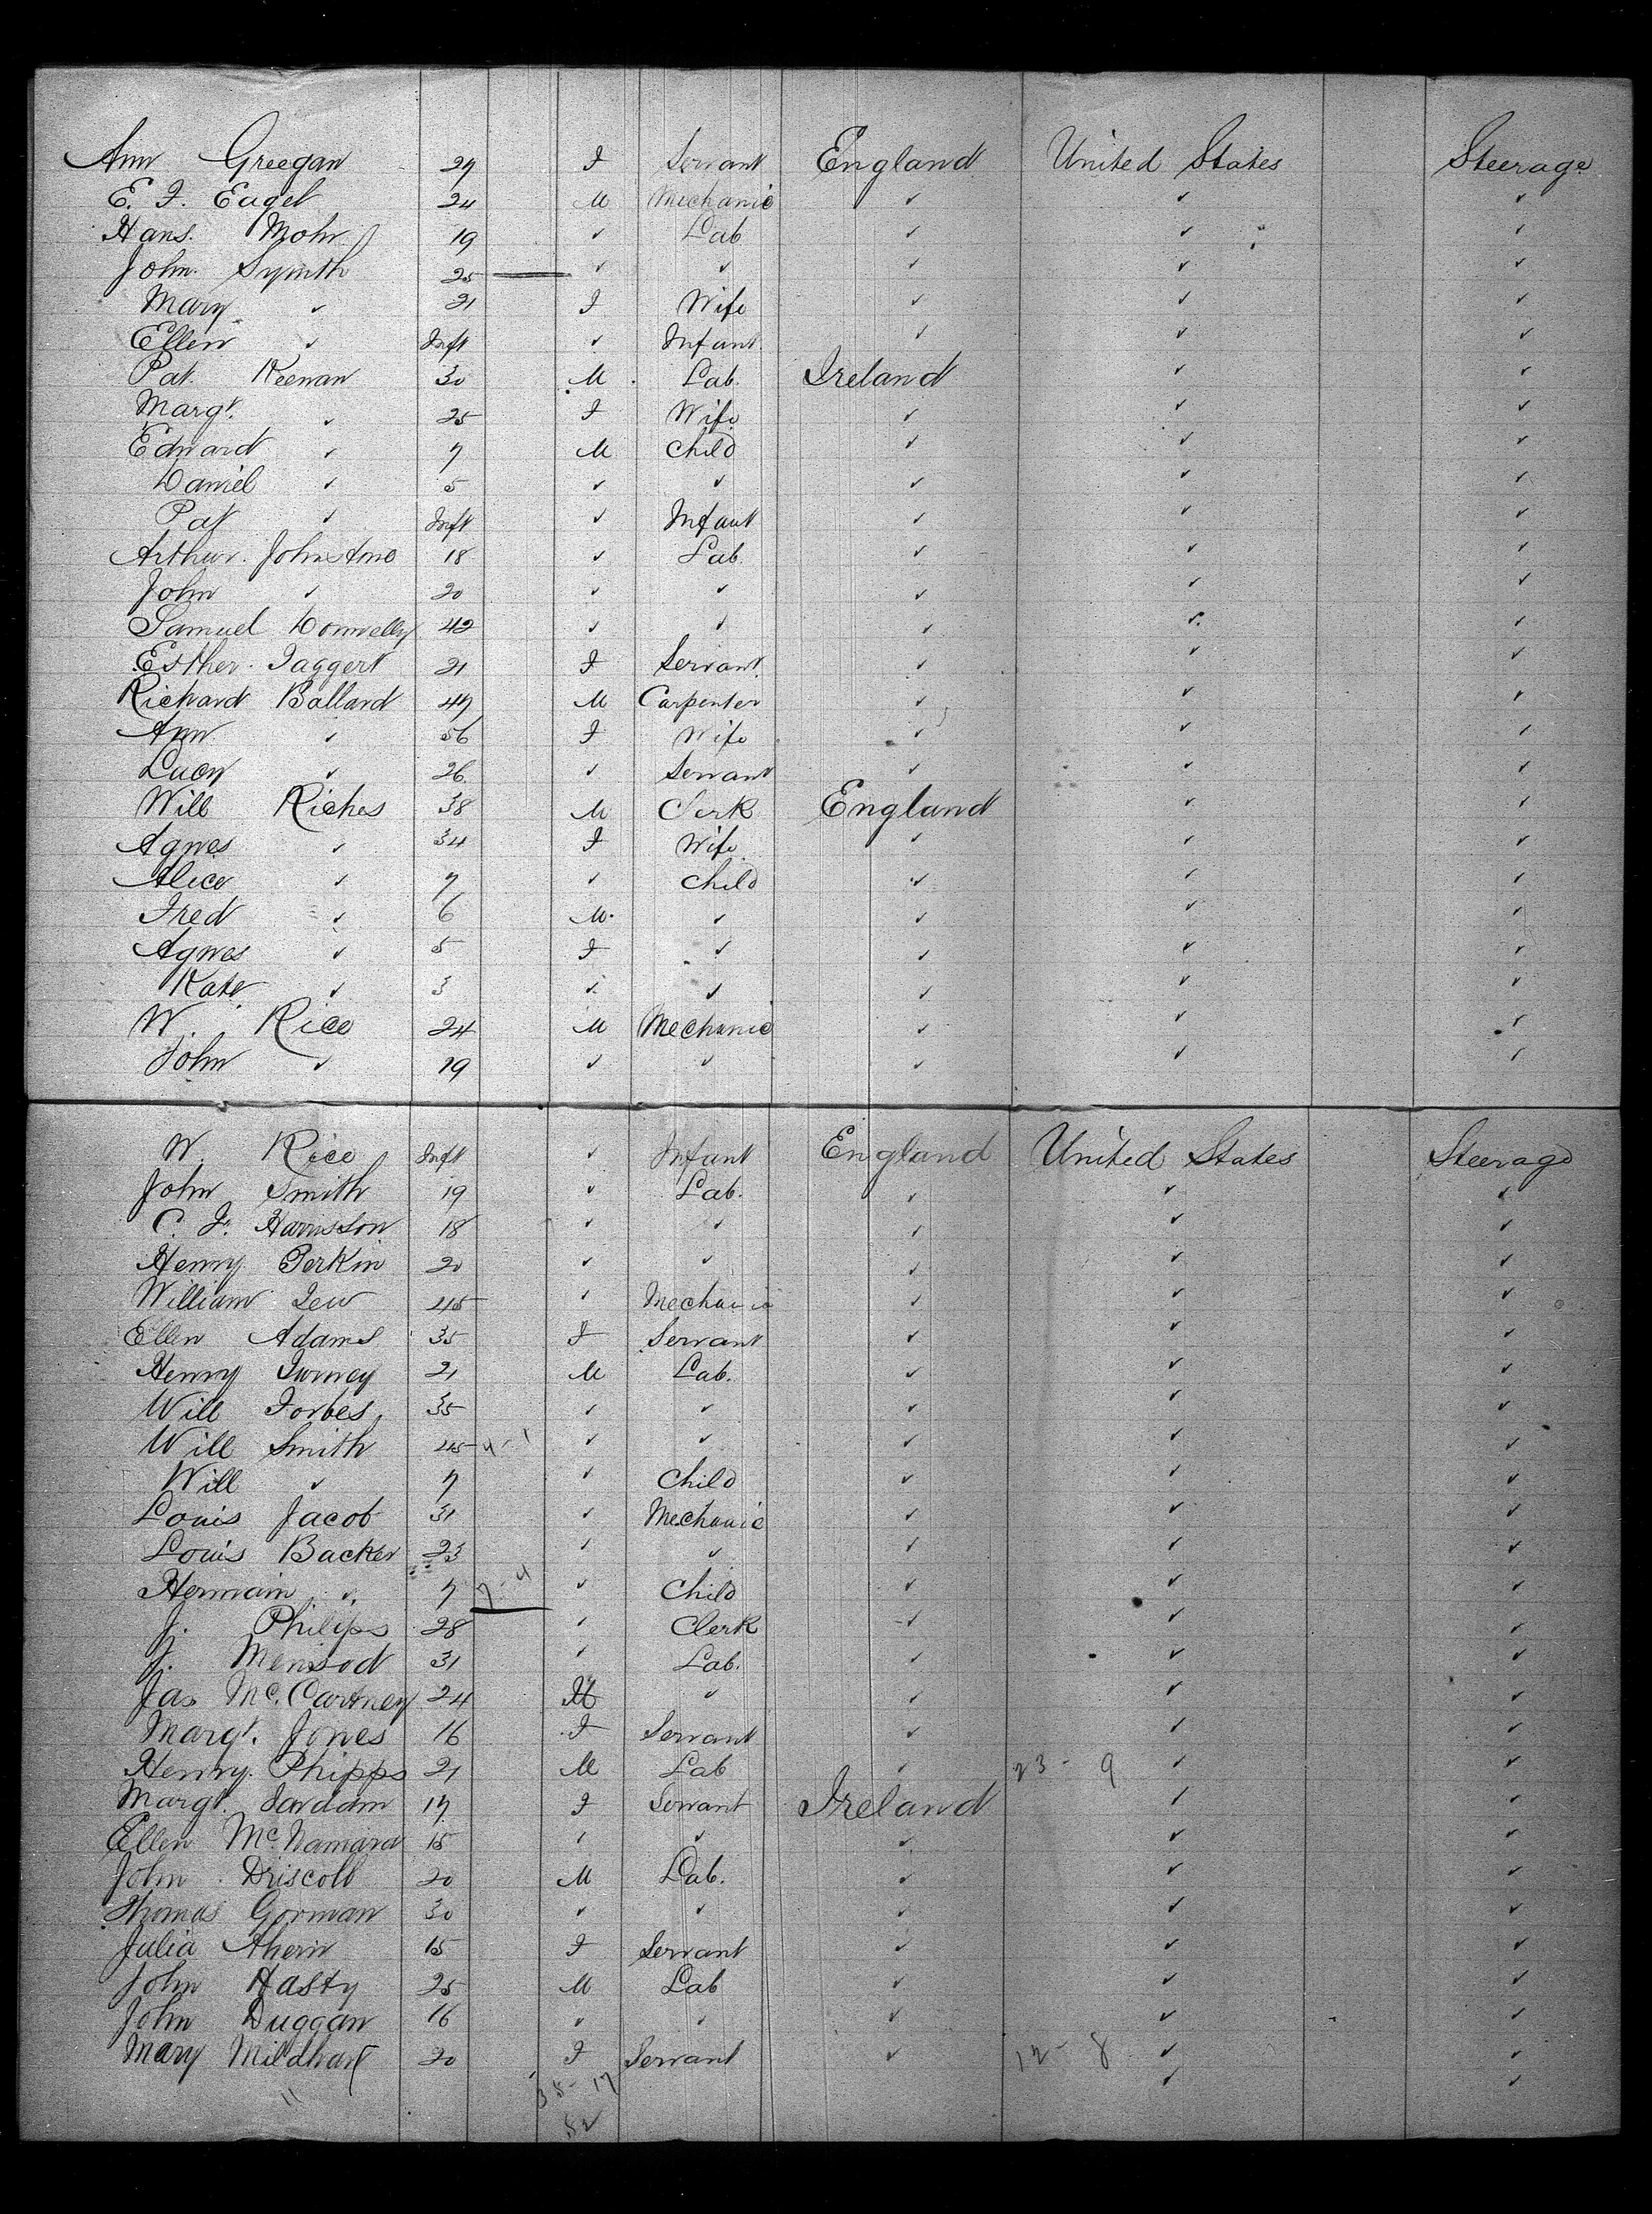 Ann Greegan 27 F Servant England United States Steerage
E. F. Eagel 24 M Mechanic ✓ ✓ ✓
Hans. Mohr 19 ✓ Lab ✓ ✓ ✓
John. Symth 25 ✓ ✓ ✓ ✓ ✓
Mary ✓ 21 F Wife ✓ ✓ ✓
Ellen ✓ Inft ✓ Infant. ✓ ✓ ✓
Pat. Keenan 30 M. Lab. Ireland ✓ ✓
Margt. ✓ 25 F Wife ✓ ✓ ✓
Edward ✓ 7 M Child ✓ ✓ ✓
Daniel ✓ 5 ✓ ✓ ✓ ✓ ✓
Pat ✓ Inft ✓ Infant ✓ ✓ ✓
Arthur. Johnstone 18 ✓ Lab. ✓ ✓ ✓
John ✓ 20 ✓ ✓ ✓ ✓ ✓
Samuel Donnelly 42 ✓ ✓ ✓ ✓ ✓
Esther. Taggert 21 F Servant. ✓ ✓ ✓
Richard Ballard 47 M Carpenter ✓ ✓ ✓
Ann ✓ 56 F Wife ✓ ✓ ✓
Lucy ✓ 26 ✓ Servant ✓ ✓ ✓
Will Riches 38 M Clerk England ✓ ✓
Agnes ✓ 34 F Wife ✓ ✓ ✓
Alice ✓ 7 ✓ Child ✓ ✓ ✓
Fred ✓ 6 M. ✓ ✓ ✓ ✓
Agnes ✓ 5 F ✓ ✓ ✓ ✓
Kate ✓ 3 ✓ ✓ ✓ ✓ ✓
W. Rice 24 M Mechanic ✓ ✓ ✓
John ✓ 19 ✓ ✓ ✓ ✓ ✓
W. Rice Inft ✓ Infant England United States Steerage
John Smith 19 ✓ Lab. ✓ ✓ ✓
C. J. Harrisson 18 ✓ ✓ ✓ ✓ ✓
Henry Perkin 20 ✓ ✓ ✓ ✓ ✓
William Lew 45 ✓ Mechanic ✓ ✓ ✓
Ellen Adams 35 F Servant ✓ ✓ ✓
Henry 21 M Lab. ✓ ✓ ✓
Will Forbes 35 ✓ ✓ ✓ ✓ ✓
Will Smith 45 4-1 ✓ ✓ ✓ ✓ ✓
Will ✓ 7 ✓ Child ✓ ✓ ✓
Louis Jacob 31 ✓ Mechanic ✓ ✓ ✓
Louis Backer 23 ✓ ✓ ✓ ✓ ✓
Hermain ✓ 7 7-4 ✓ Child ✓ ✓ ✓
J. Philips 28 ✓ Clerk ✓ ✓ ✓
J. 31 ✓ Lab. ✓ ✓ ✓
Jas McCartney 24 M ✓ ✓ ✓ ✓
Margt. Jones 16 F Servant ✓ ✓ ✓
Henry. Phipps 21 M Lab ✓ 23-9 ✓ ✓
Margt. 17 F Servant Ireland ✓ ✓
Ellen McNamara 15 ✓ ✓ ✓ ✓ ✓
John Driscoll 20 M Lab. ✓ ✓ ✓
Thomas Gorman 30 ✓ ✓ ✓ ✓ ✓
Julia Ahern 15 F Servant ✓ ✓ ✓
John Hasty 25 M Lab ✓ ✓ ✓
John Duggan 16 ✓ ✓ ✓ ✓ ✓
Mary Mildhart 20 F Servant ✓ 12-8 ✓ ✓
11 35-17 ✓ ✓
52